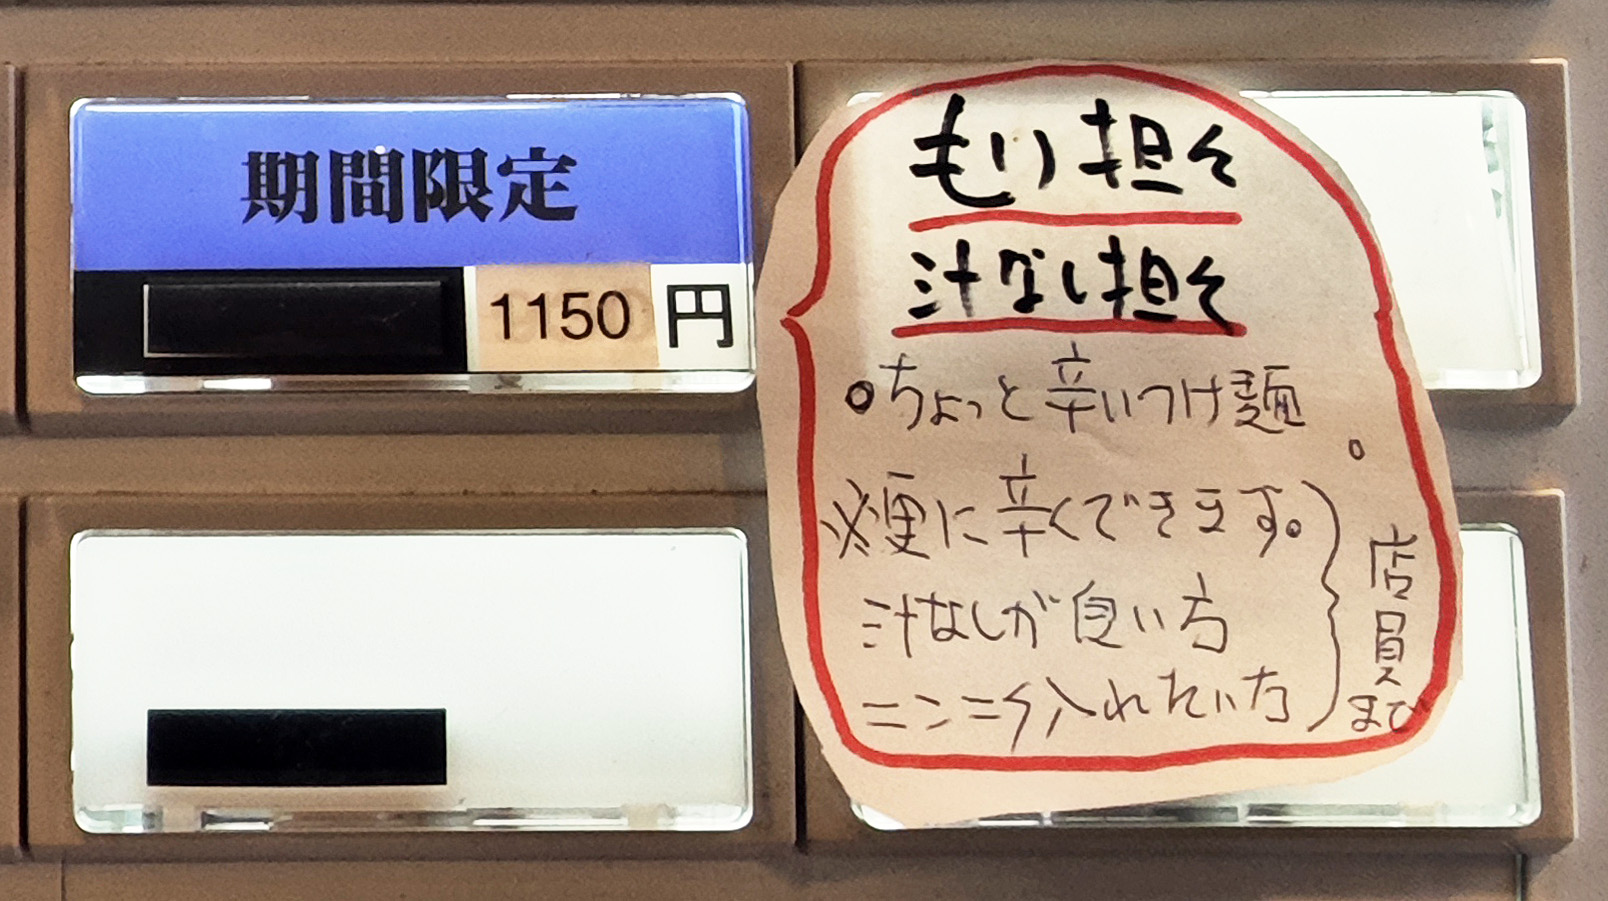 期間限定
1150円
もり担々
汁なし担々
○ちょっと辛いつけ麺。
※更に辛くできます。
汁なしが良い方
ニンニク入れたい方
店員まで